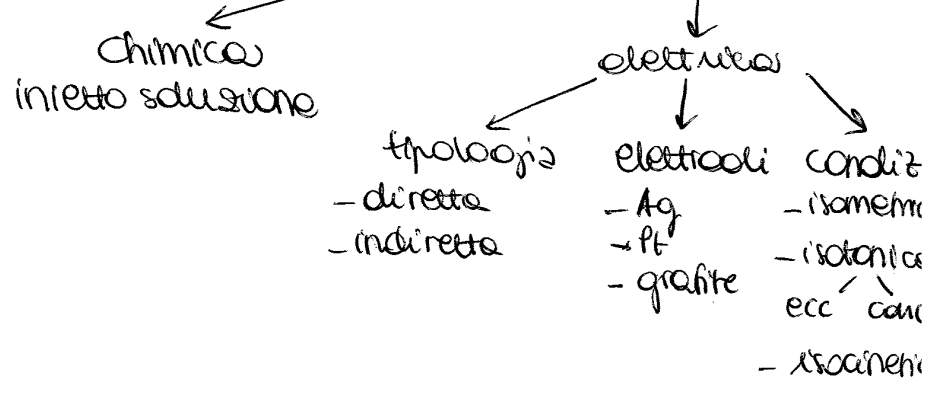 chimica
inietto soluzione
elettrica
tipologia
- diretta
- indiretta
elettrodi
- Ag
- Pt
- grafite
condiz
- isometri
- isotonica
ecc conc
- isocineti